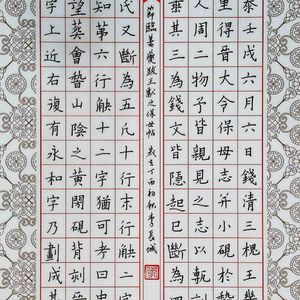 泰壬戌六月六日錢清三槐王畿
里得晉大令保母志并小硯於樵
人周二物予皆親見之志以軌
其三為錢文皆隱起已斷為四
節臨姜夔跋王獻之保母帖 歲在丁酉初秋李長城
氏又斷為五凡十行末行缺二
知第六行缺十二字猶可考曰
望葬會稽山陰之黃閍硯背刻晉
字上近右復有永和字乃劃成